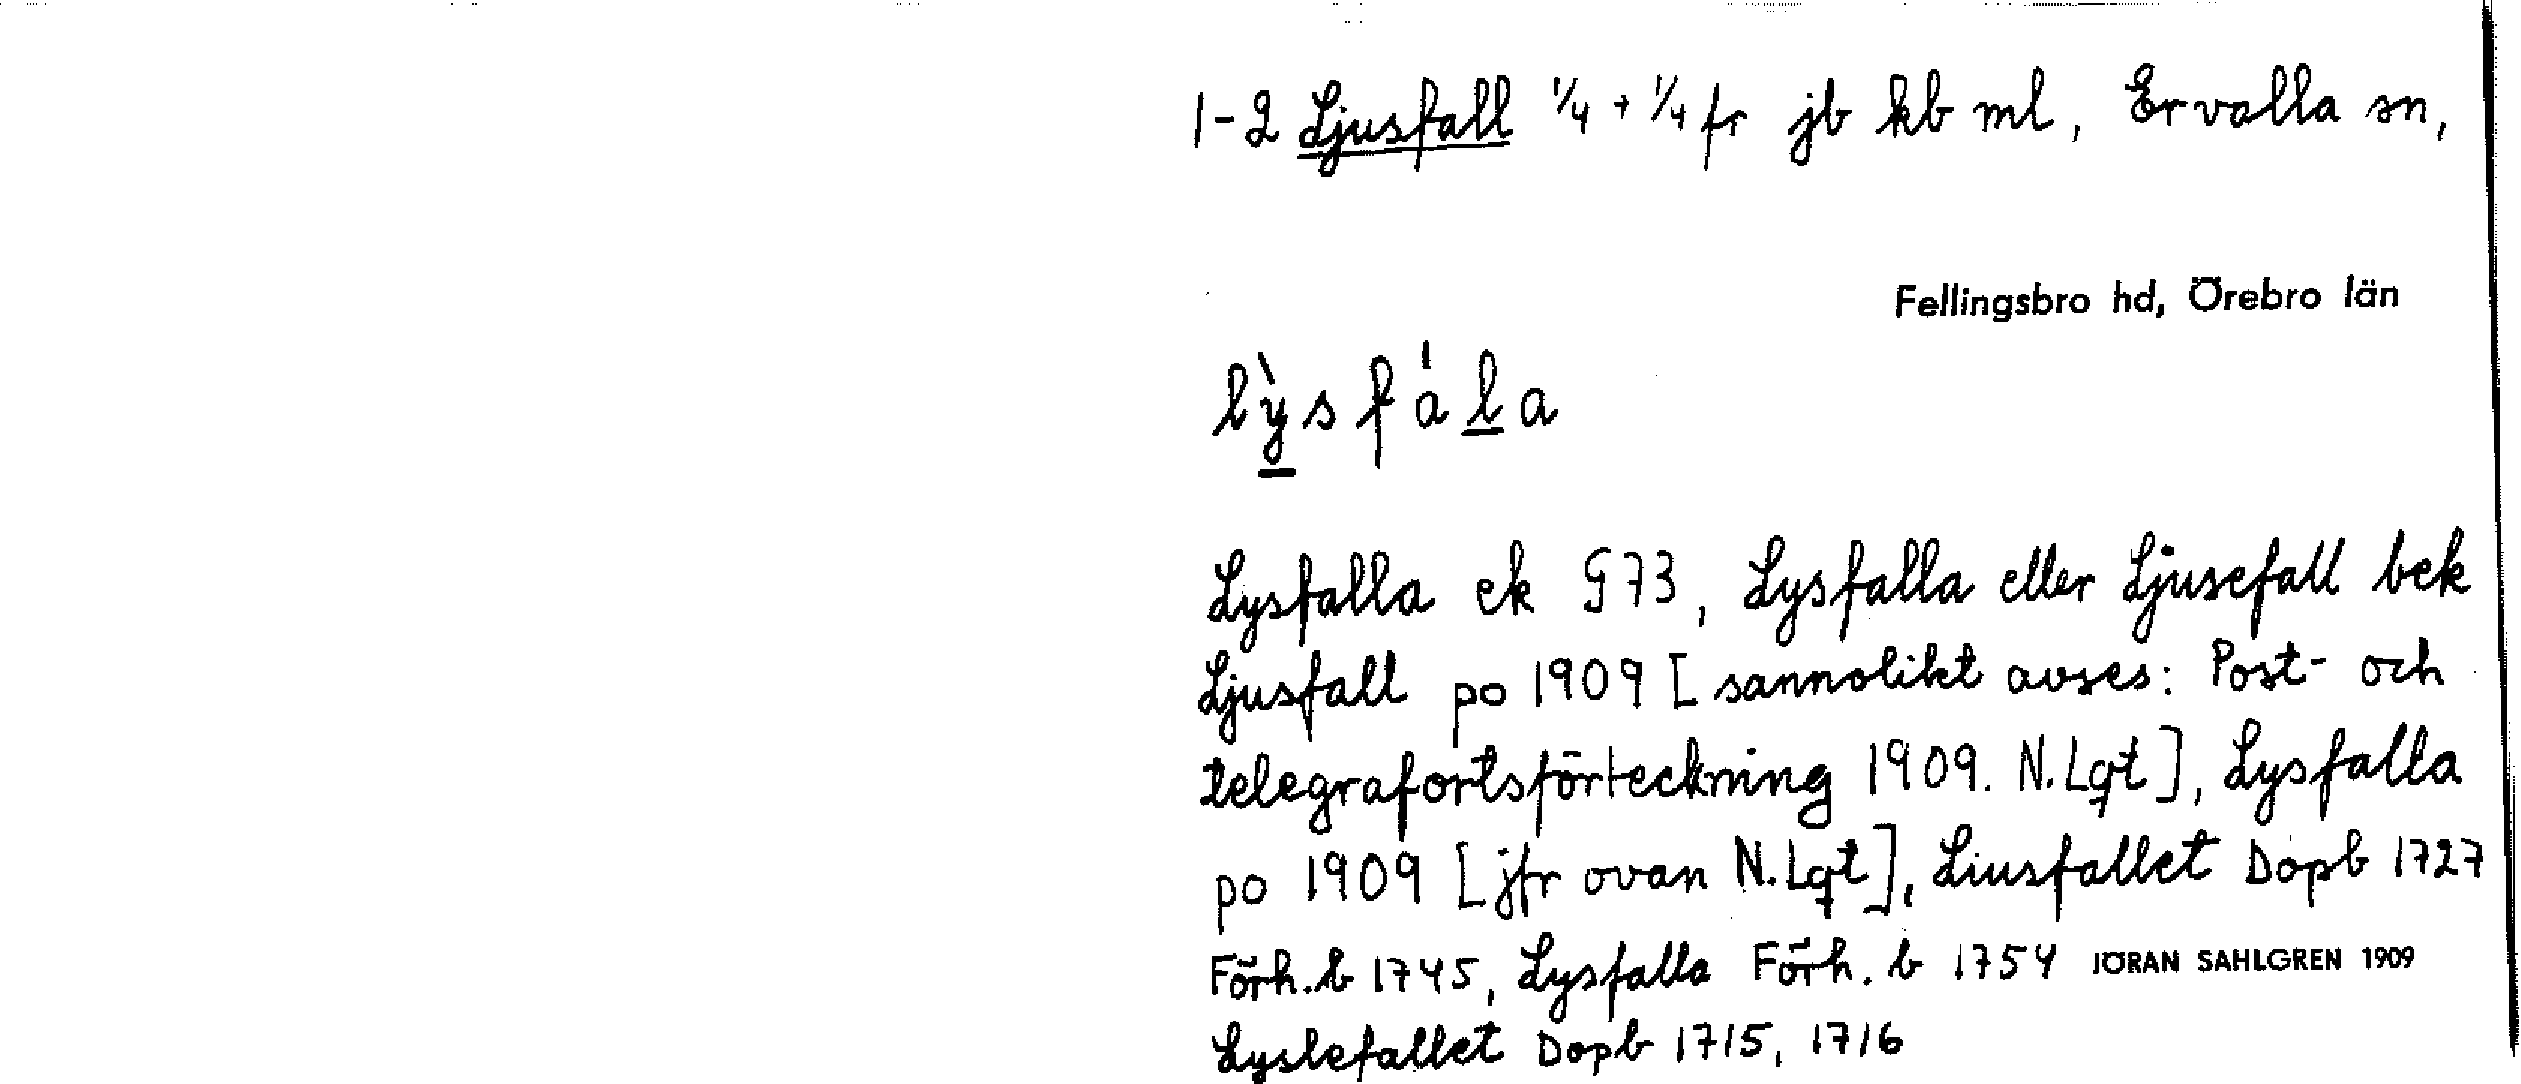 1-2 Ljusfall 1/4 + 1/4 fr jb kb ml, Ervalla sn,
Fellingsbro hd, Örebro län
lỳsfála
Lysfalla ek G73, Lysfalla eller Ljusefall bek
Ljusfall po 1909 [sannolikt avses: Post- och
telegrafortsförteckning 1909. N.Lgt], Lysfalla
po 1909 [jfr ovan N.Lgt], Liusfallet Dopb 1727
Förh.b 1745, Lysfalla Förh.b 1754 JÖRAN SAHLGREN 1909
Lyslefallet Dopb 1715, 1716